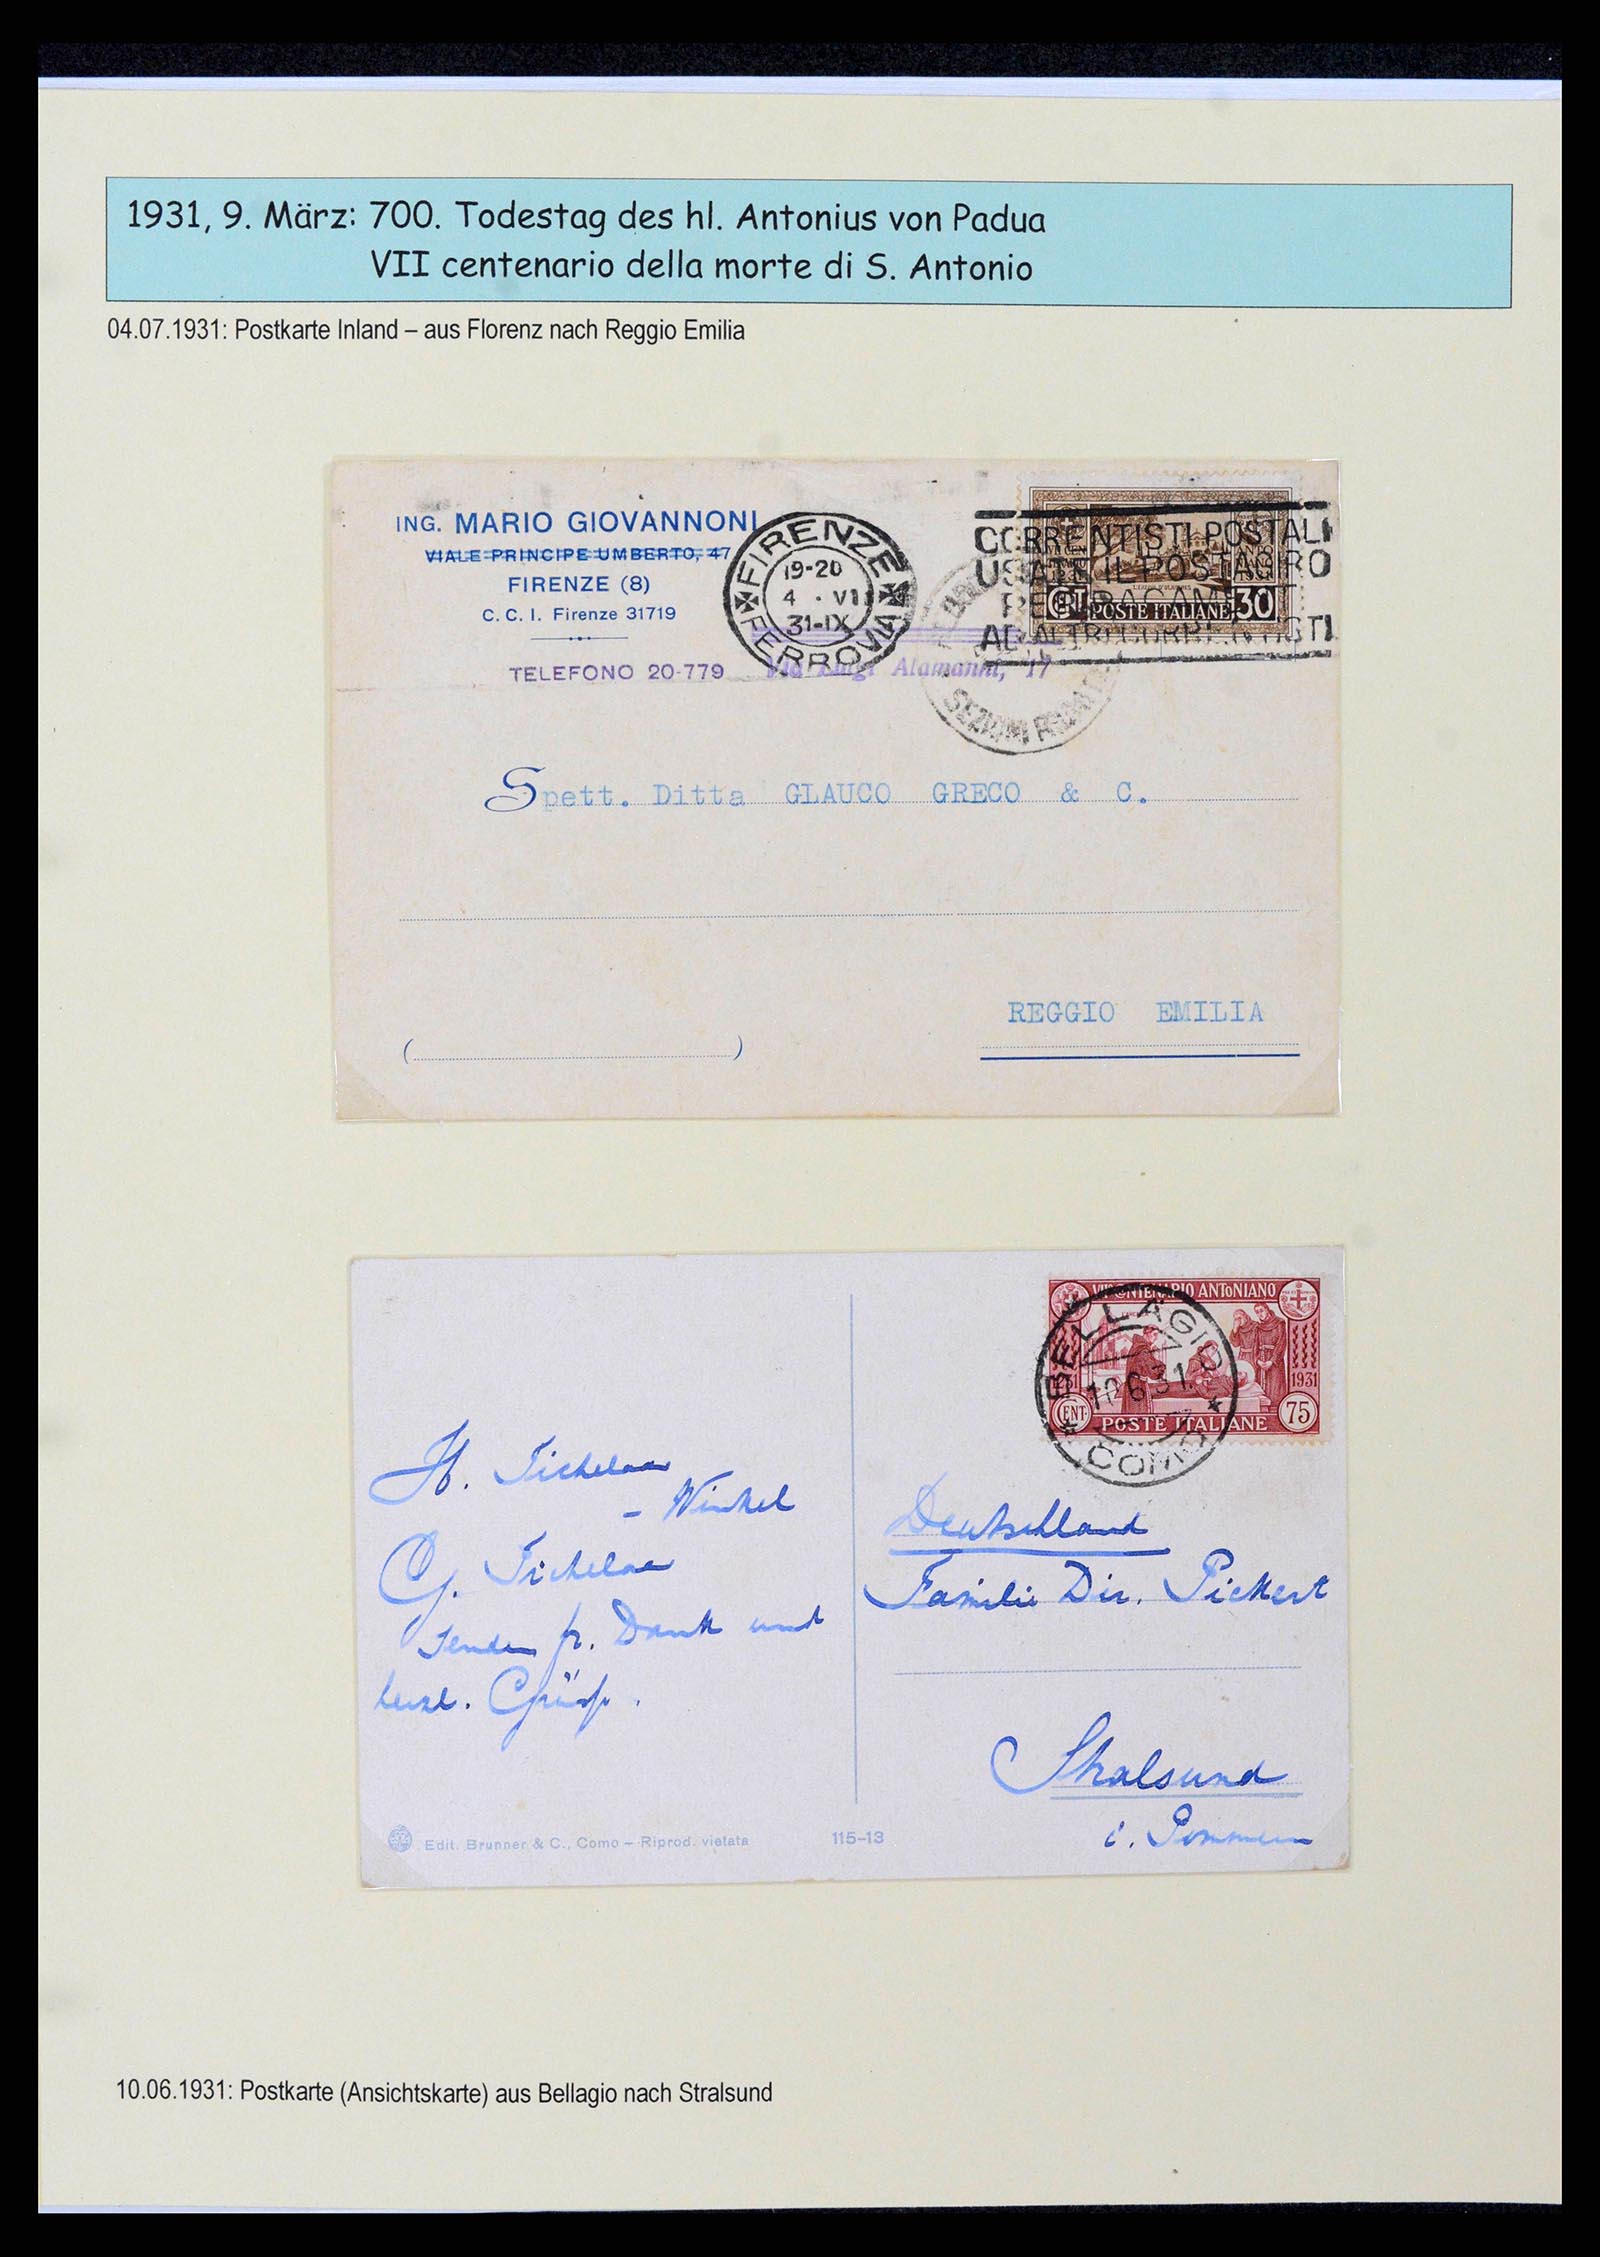 1931, 9. März: 700. Todestag des hl. Antonius von Padua
VII centenario della morte di S. Antonio
04.07.1931: Postkarte Inland – aus Florenz nach Reggio Emilia
ING. MARIO GIOVANNONI
VIALE PRINCIPE UMBERTO, 47
FIRENZE (8)
C. C. I. Firenze 31719
TELEFONO 20-779
Via Luigi Alamanni, 17
FIRENZE
19-20
4 · VI
31-IX
FERROVIA
CORRENTISTI POSTALI
USATE IL POSTAGIRO
AD ALTRI CORRENTISTI
CENT POSTE ITALIANE 30
Spett. Ditta GLAUCO GRECO & C.
REGGIO EMILIA
( )
VII CENTENARIO ANTONIANO
1931
CENT 75
POSTE ITALIANE
BELLAGIO
10.6.31.
COMO
- Winkel
Senden fr. Dank und
herzl. Grüße.
Deutschland
Familie Dir. Pickert
Stralsund
i. Pommern
Edit. Brunner & C., Como – Riprod. vietata 115-13
10.06.1931: Postkarte (Ansichtskarte) aus Bellagio nach Stralsund